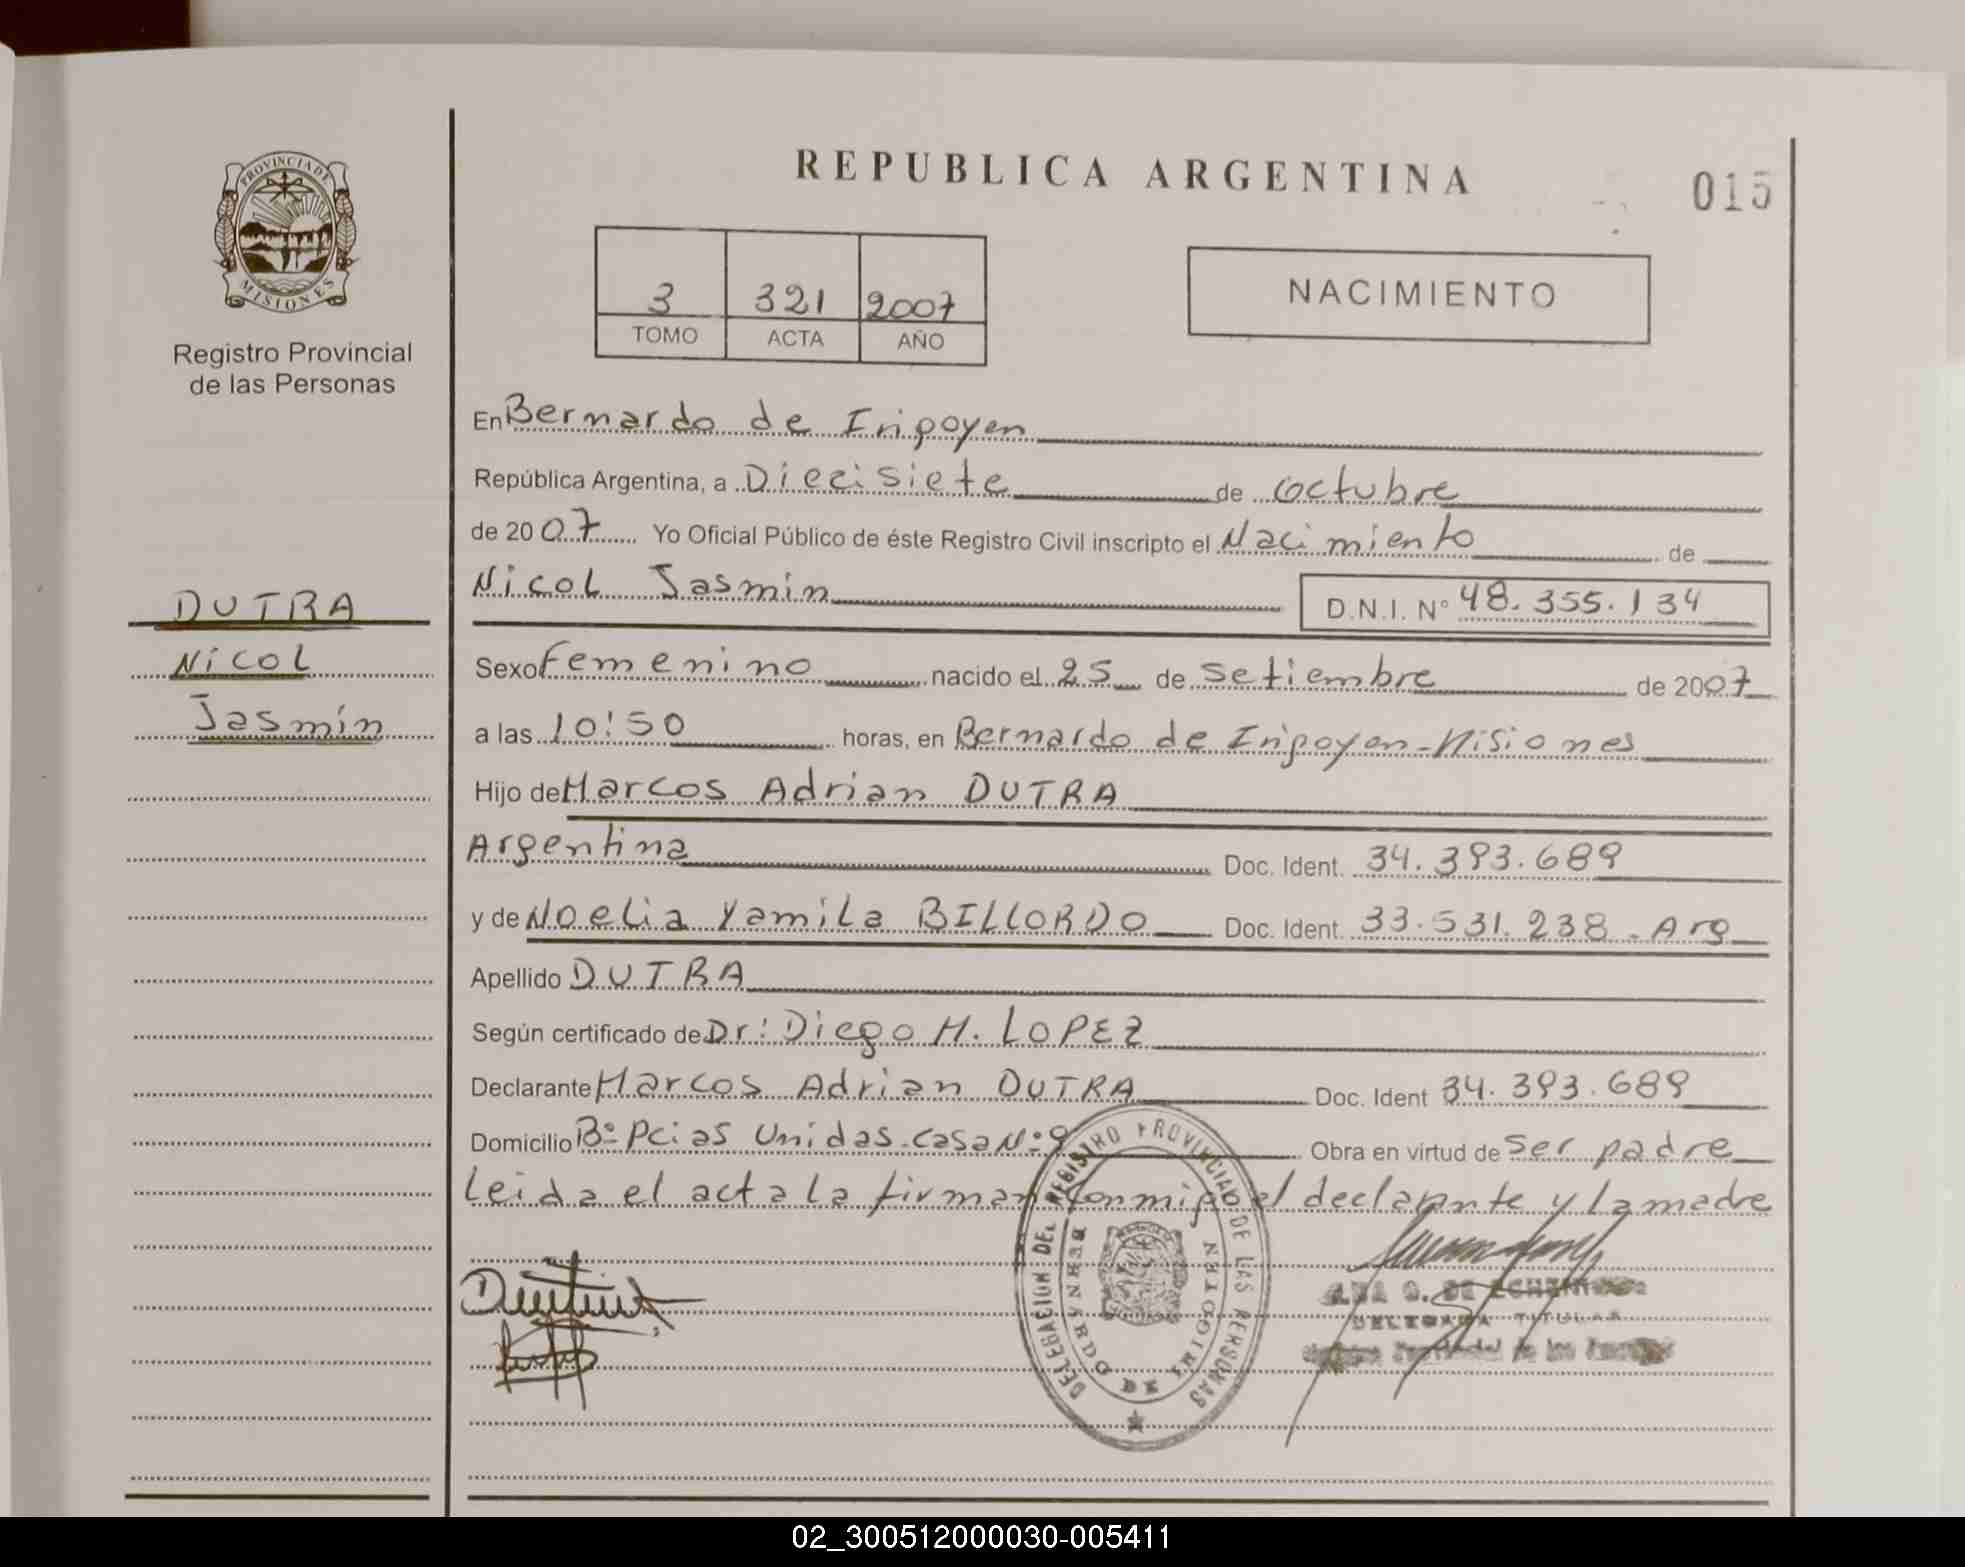 PROVINCIA DE
MISIONES
Registro Provincial
de las Personas
DUTRA
Nicol
Jasmín
REPUBLICA ARGENTINA
015
3 321 2007
TOMO ACTA AÑO
NACIMIENTO
En Bernardo de Irigoyen
República Argentina, a Diecisiete de octubre
de 2007 Yo Oficial Público de éste Registro Civil inscripto el Nacimiento de
Nicol Jasmín D.N.I. N° 48.355.134
Sexo Femenino nacido el 25 de Setiembre de 2007
a las 10:50 horas, en Bernardo de Irigoyen-Misiones
Hijo de Marcos Adrian DUTRA
Argentina Doc. Ident. 34.393.689
y de Noelia Yamila BILLORDO Doc. Ident. 33.531.238 - Arg
Apellido DUTRA
Según certificado de Dr: Diego M. LOPEZ
Declarante Marcos Adrian DUTRA Doc. Ident 34.393.689
Domicilio B° Pcias Unidas-casa N:9 Obra en virtud de ser padre
Leida el acta la firman conmigo el declarante y la madre
DELEGACION DEL REGISTRO PROVINCIAL DE LAS PERSONAS
BERNARDO DE IRIGOYEN
DELEGADA TITULAR
02_300512000030-005411